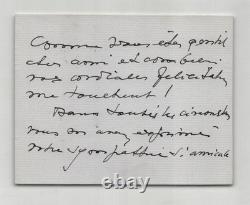 Comme vous êtes gentil
cher ami et combien
vos cordiales félicitations
me touchent !
Dans toutes les circonstances
vous m'avez exprimé
votre sympathie si amicale